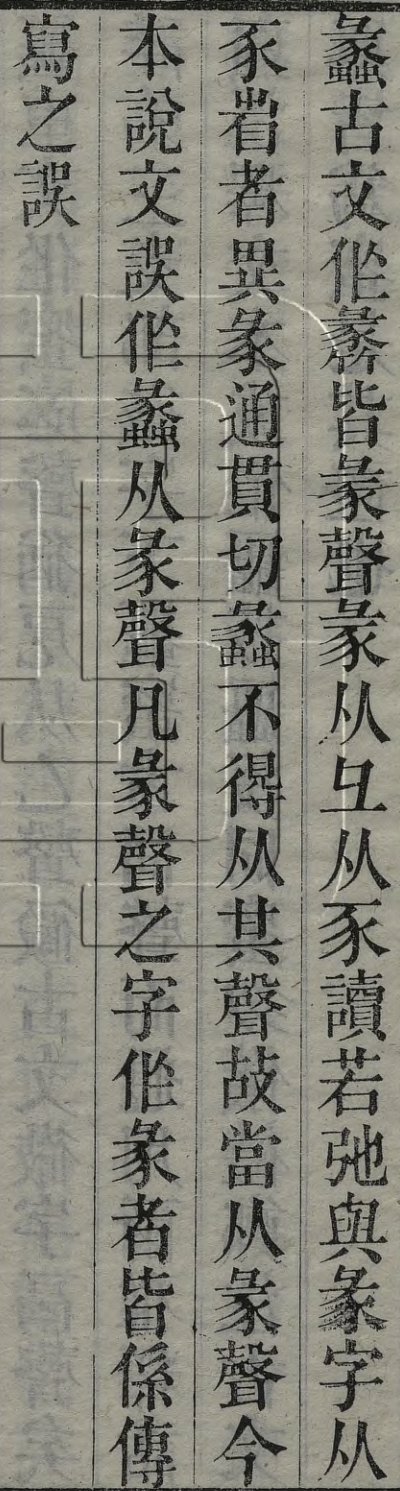 蠡古文作皆彖聲彖从彑从豕讀若弛與彖字从
豕省者異彖通貫切蠡不得从其聲故當从彖聲今
本說文誤作蠡从彖聲凡彖聲之字作彖者皆係傳
寫之誤